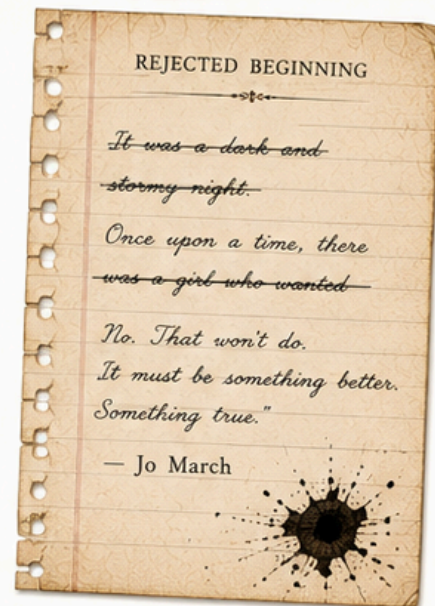 REJECTED BEGINNING
It was a dark and
stormy night.
Once upon a time, there
was a girl who wanted
No. That won't do.
It must be something better.
Something true."
— Jo March